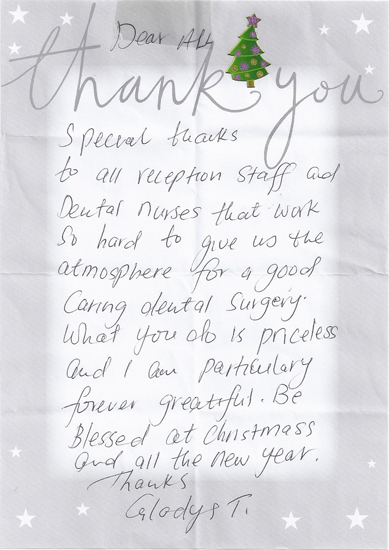 Dear All
thank you
Special thanks
to all reception staff and
Dental nurses that work
So hard to give us the
atmosphere for a good
Caring dental Surgery.
What you do is priceless
and I am particulary
forever greatful. Be
Blessed at Christmass
and all the new year.
Thanks
Gladys T.